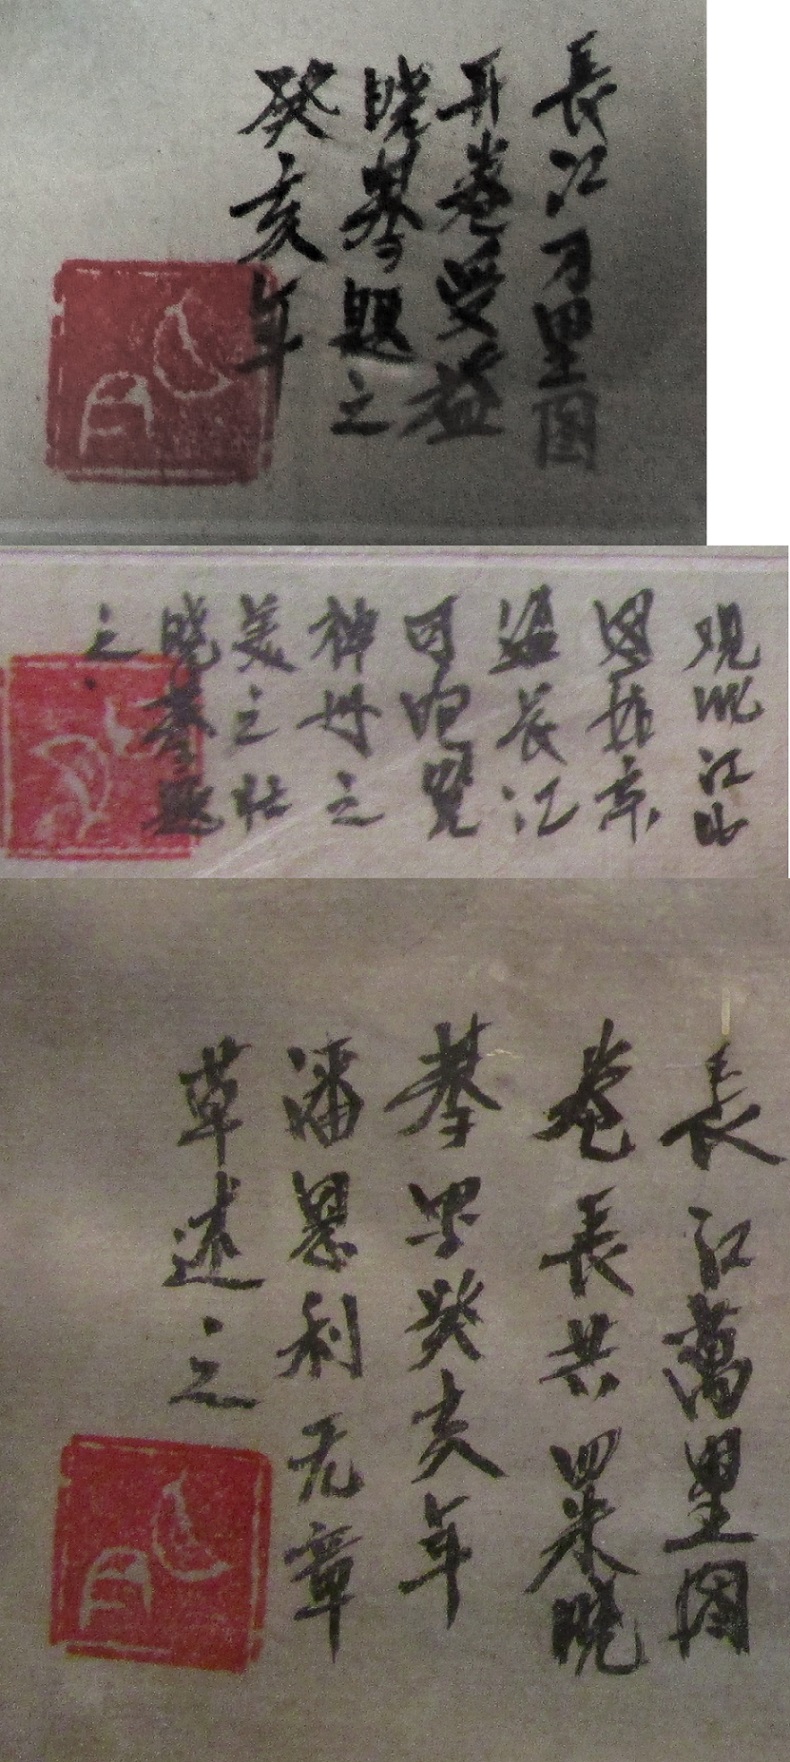 長江万里图
开卷受益
晓基题之
癸亥年
观此江山
图如亲
临长江
可饱览
神州之
美之壮
晓基题
之
長江萬里图
卷長共四米晓
基畢癸亥年
潘恩利无章
草述之